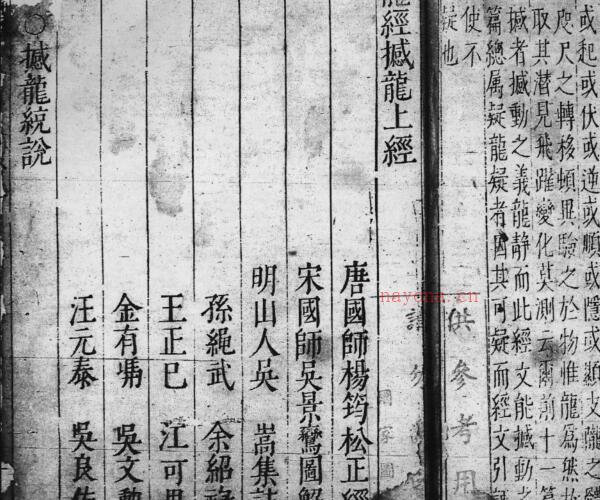 或起或伏或逆或順或隱或顯支隴之
咫尺之轉移頓異驗之於物惟龍為然
取其潛見飛躍變化莫測云爾前十一篇
撼者撼動之義龍靜而此經文能撼動之
篇總属疑龍疑者因其可疑而經文引
使不
疑也
龍經撼龍上經
唐國師楊筠松正經
宋國師吴景鸞圖解
明山人吴 嵩集
孫繩武 余紹
王正巳 江可
金有 吳文
汪元泰 吳良
○撼龍統說
供參考用
nayona.cn